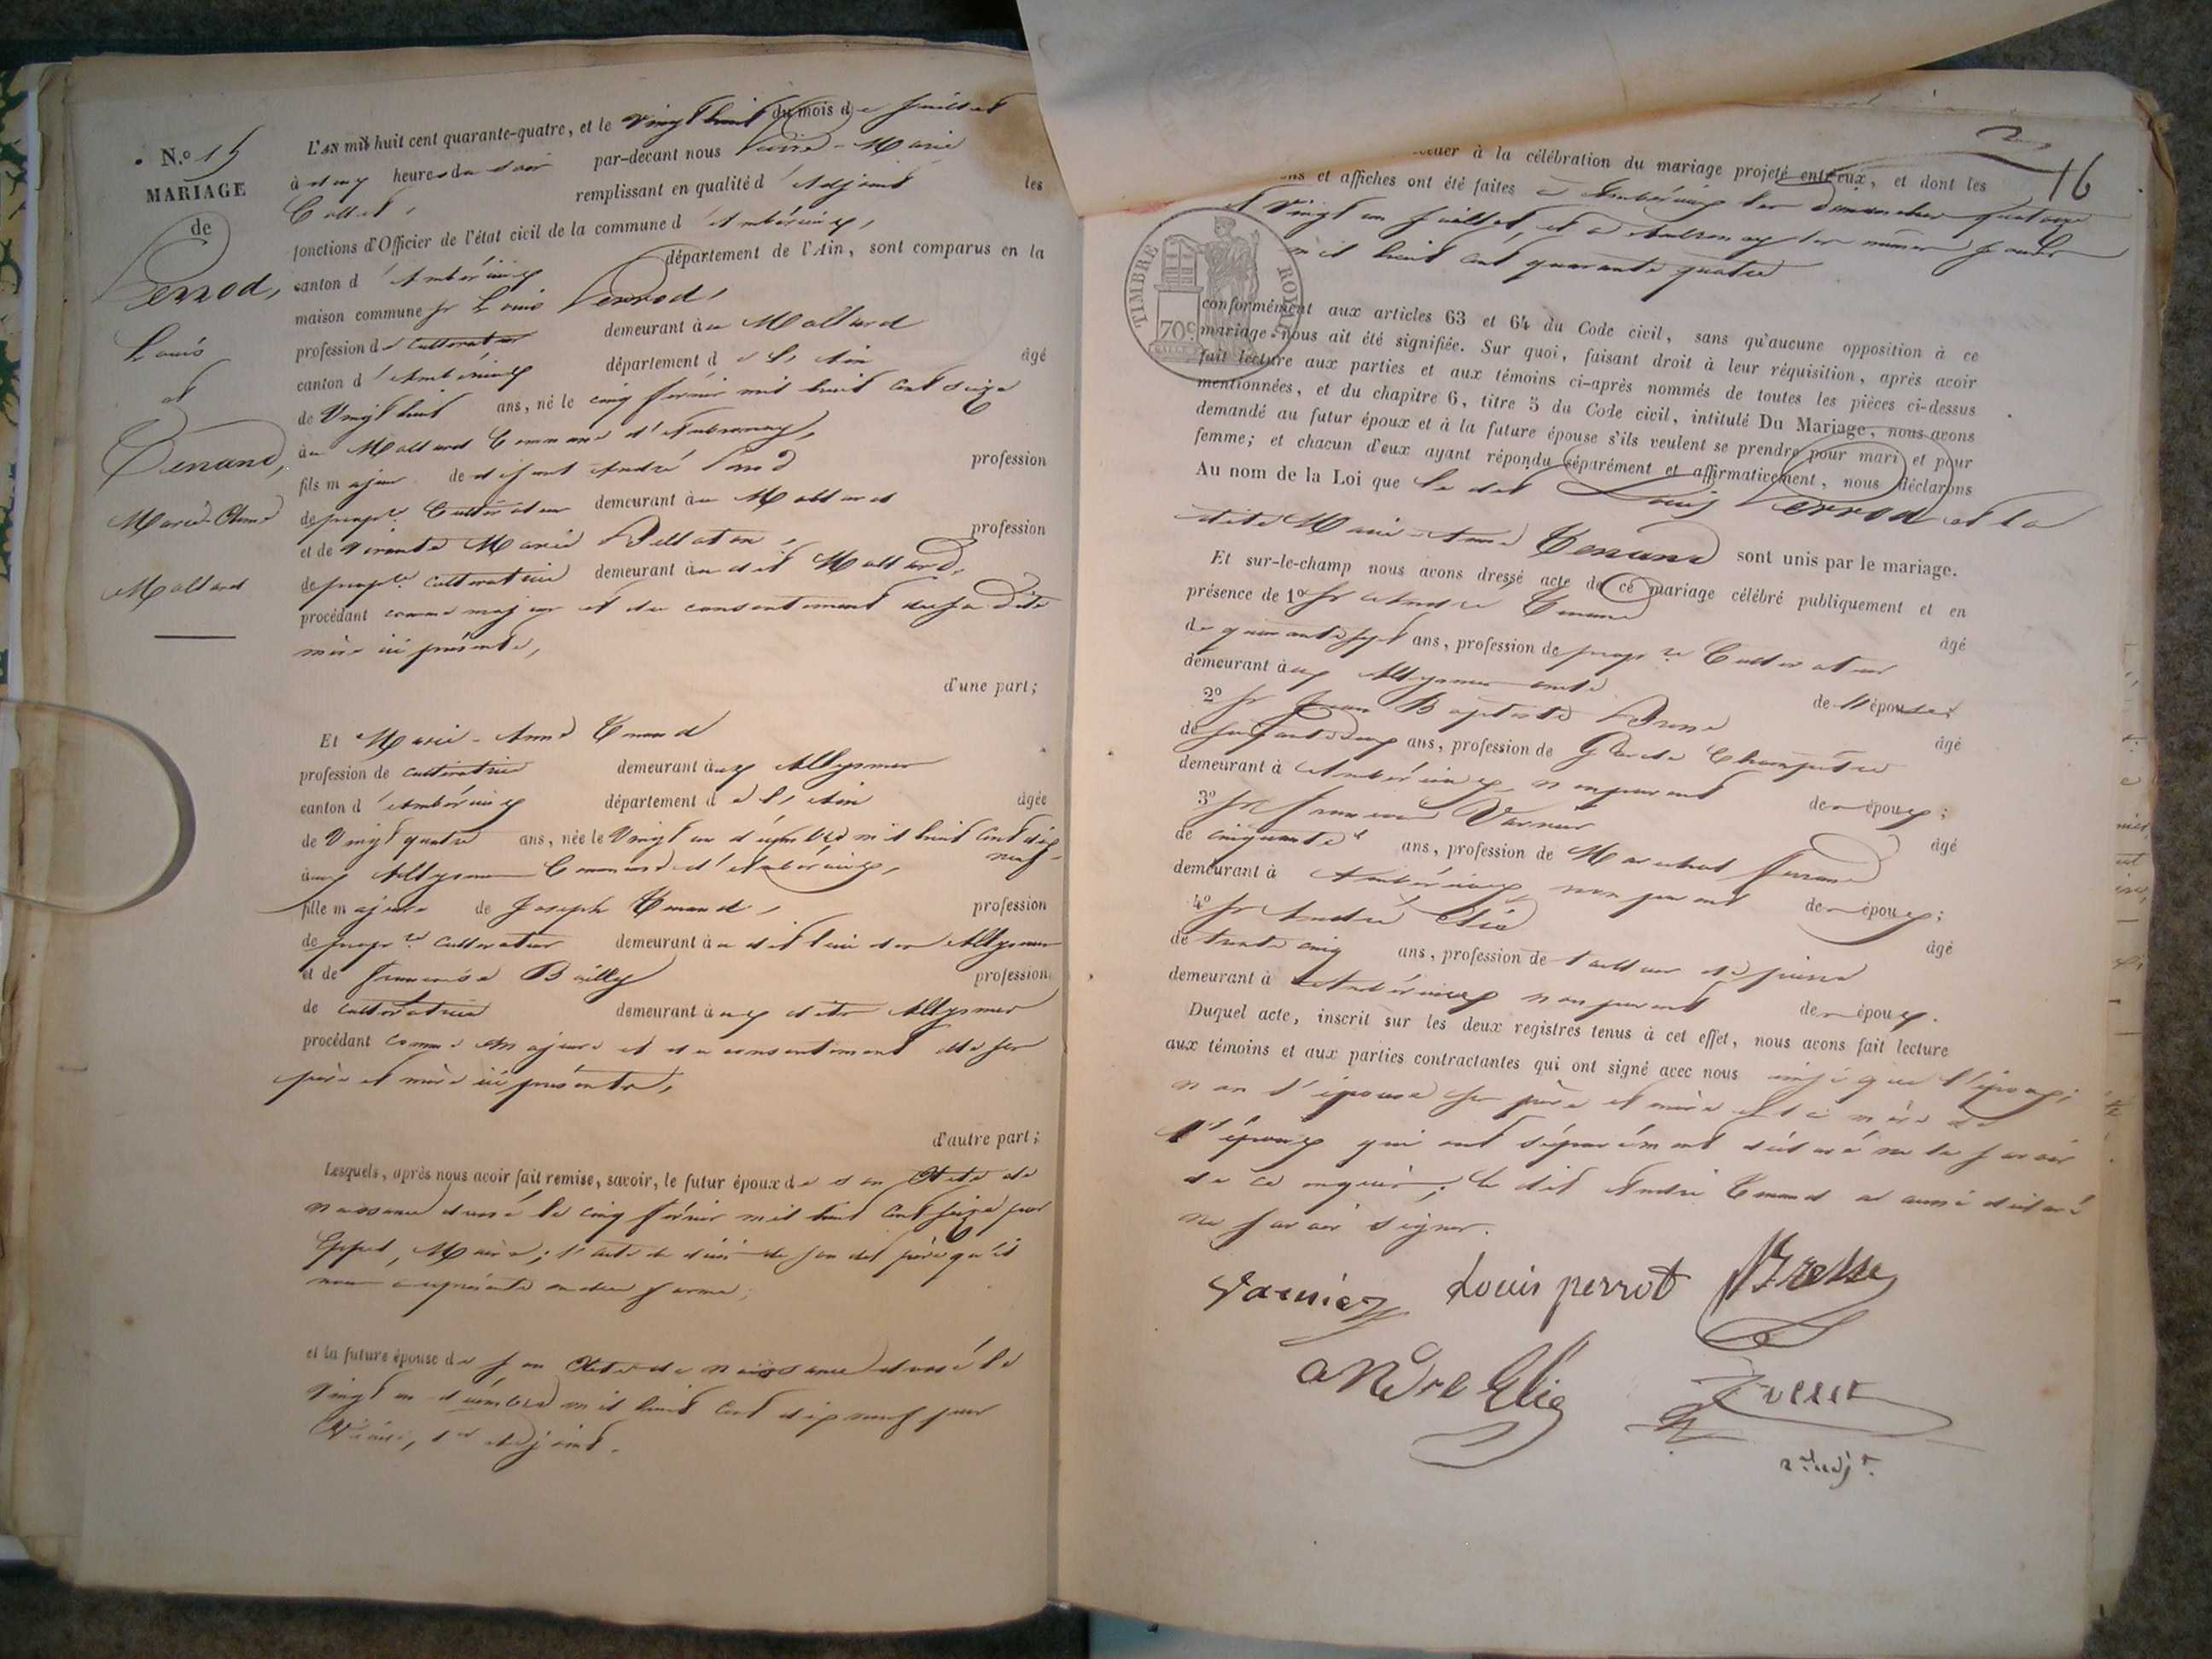 N.o 15
MARIAGE
de
Perrod,
Louis
et
Tenand,
Marie-Anne
Mollard
L'AN mil huit cent quarante-quatre, et le vingt huit du mois de juillet
à deux heures du soir par-devant nous Pierre-Marie
remplissant en qualité d'Adjoint les
fonctions d'Officier de l'état civil de la commune d'Ambérieux,
canton d'Ambérieux département de l'Ain, sont comparus en la
maison commune sr Louis Perrod,
profession de cultivateur demeurant au Mollard
canton d'Ambérieux département de l'Ain âgé
de vingt huit ans, né le cinq février mil huit cent seize
au Mollard Commune d'Ambronay,
fils majeur de défunt André Perrod profession
de propre. Cultivateur demeurant au Mollard
et de vivante Marie profession
de propre. cultivatrice demeurant au dit Mollard,
procédant comme majeur et du consentement de sa dite
mère ici présente,
d'une part;
Et Marie-Anne Tenand
profession de cultivatrice demeurant aux Allymes
canton d'Ambérieux département de l'Ain âgée
de vingt quatre ans, née le vingt un décembre mil huit cent dix
neuf
aux Allymes Commune d'Ambérieux,
fille majeure de Joseph Tenand, profession
de propre. cultivateur demeurant au dit lieu des Allymes
et de Françoise Bailly profession
de cultivatrice demeurant aux dites Allymes
procédant comme majeure et du consentement de ses
père et mère ici présents,
d'autre part;
Lesquels, après nous avoir fait remise, savoir, le futur époux de son Acte de
naissance dressé le cinq février mil huit cent seize par
Maire; l'acte de décès de son dit père qu'il
nous a représenté en due forme;
et la future épouse de son Acte de naissance dressé le
vingt un décembre mil huit cent dix neuf par
1er adjoint.
16
à la célébration du mariage projeté entr'eux, et dont les
et affiches ont été faites à Ambérieux les dimanches quatorze
et vingt un juillet, et à Ambronay les mêmes jours
mil huit cent quarante quatre
TIMBRE ROYAL
70c
conformément aux articles 63 et 64 du Code civil, sans qu'aucune opposition à ce
mariage nous ait été signifiée. Sur quoi, faisant droit à leur réquisition, après avoir
fait lecture aux parties et aux témoins ci-après nommés de toutes les pièces ci-dessus
mentionnées, et du chapitre 6, titre 5 du Code civil, intitulé Du Mariage, nous avons
demandé au futur époux et à la future épouse s'ils veulent se prendre pour mari et pour
femme; et chacun d'eux ayant répondu séparément et affirmativement, nous déclarons
Au nom de la Loi que le dit Louis Perrod et la
dite Marie-Anne Tenand sont unis par le mariage.
Et sur-le-champ nous avons dressé acte de ce mariage célébré publiquement et en
présence de 1o sr André Tenand âgé
de quarante sept ans, profession de propre. Cultivateur
demeurant aux Allymes de l'épouse
2o sr Jean Baptiste âgé
de soixante deux ans, profession de Garde Champêtre
demeurant à Ambérieux, non parent des époux;
3o sr François Varnier âgé
de cinquante ans, profession de Maréchal ferrant
demeurant à Ambérieux, non parent des époux;
4o sr André Elie âgé
de trente cinq ans, profession de tailleur de pierre
demeurant à Ambérieux non parent des époux.
Duquel acte, inscrit sur les deux registres tenus à cet effet, nous avons fait lecture
aux témoins et aux parties contractantes qui ont signé avec nous ainsi que l'époux;
non l'épouse ses père et mère et la mère de
l'époux qui ont séparément déclaré ne le savoir
de ce enquis; le dit André Tenand a aussi déclaré
ne savoir signer.
Varnier Louis perrot
andre Elie
2me adjt.